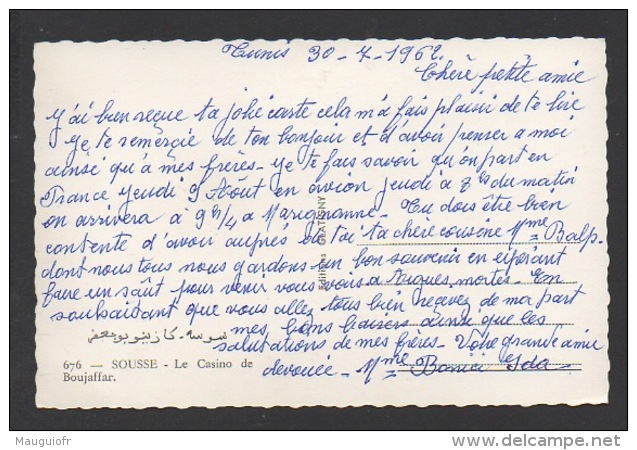 Tunis 30-7-1962.
Chère petite amie
y'ai bien reçue ta jolie carte cela m'a fais plaisir de te lire
ye te remerçie de ton bonjour et d'avoir penser a moi
ainsi qu'à mes frères - ye te fais savoir qu'on part en
France yeudi 9 Août en avion jeudi a 7 hes du matin
on arrivera à 9h 1/4 a Marignanne - Tu dois être bien
contente d'avoir auprès de toi ta chère cousine Mme Balp.
dont nous tous nous gardons un bon souvenir en espérant
faire un saût pour venir vous voir a Aigues mortes - En
souhaidant que vous allez tous bien reçevez de ma part
mes bons baisers ainsi que les
salutations de mes frères - Votre grande amie
devouée - Mme Ida
Editions
سوسة - كازينو بوجعفر
676 — SOUSSE - Le Casino de
Boujaffar.
Mauguiofr
www.delcampe.net